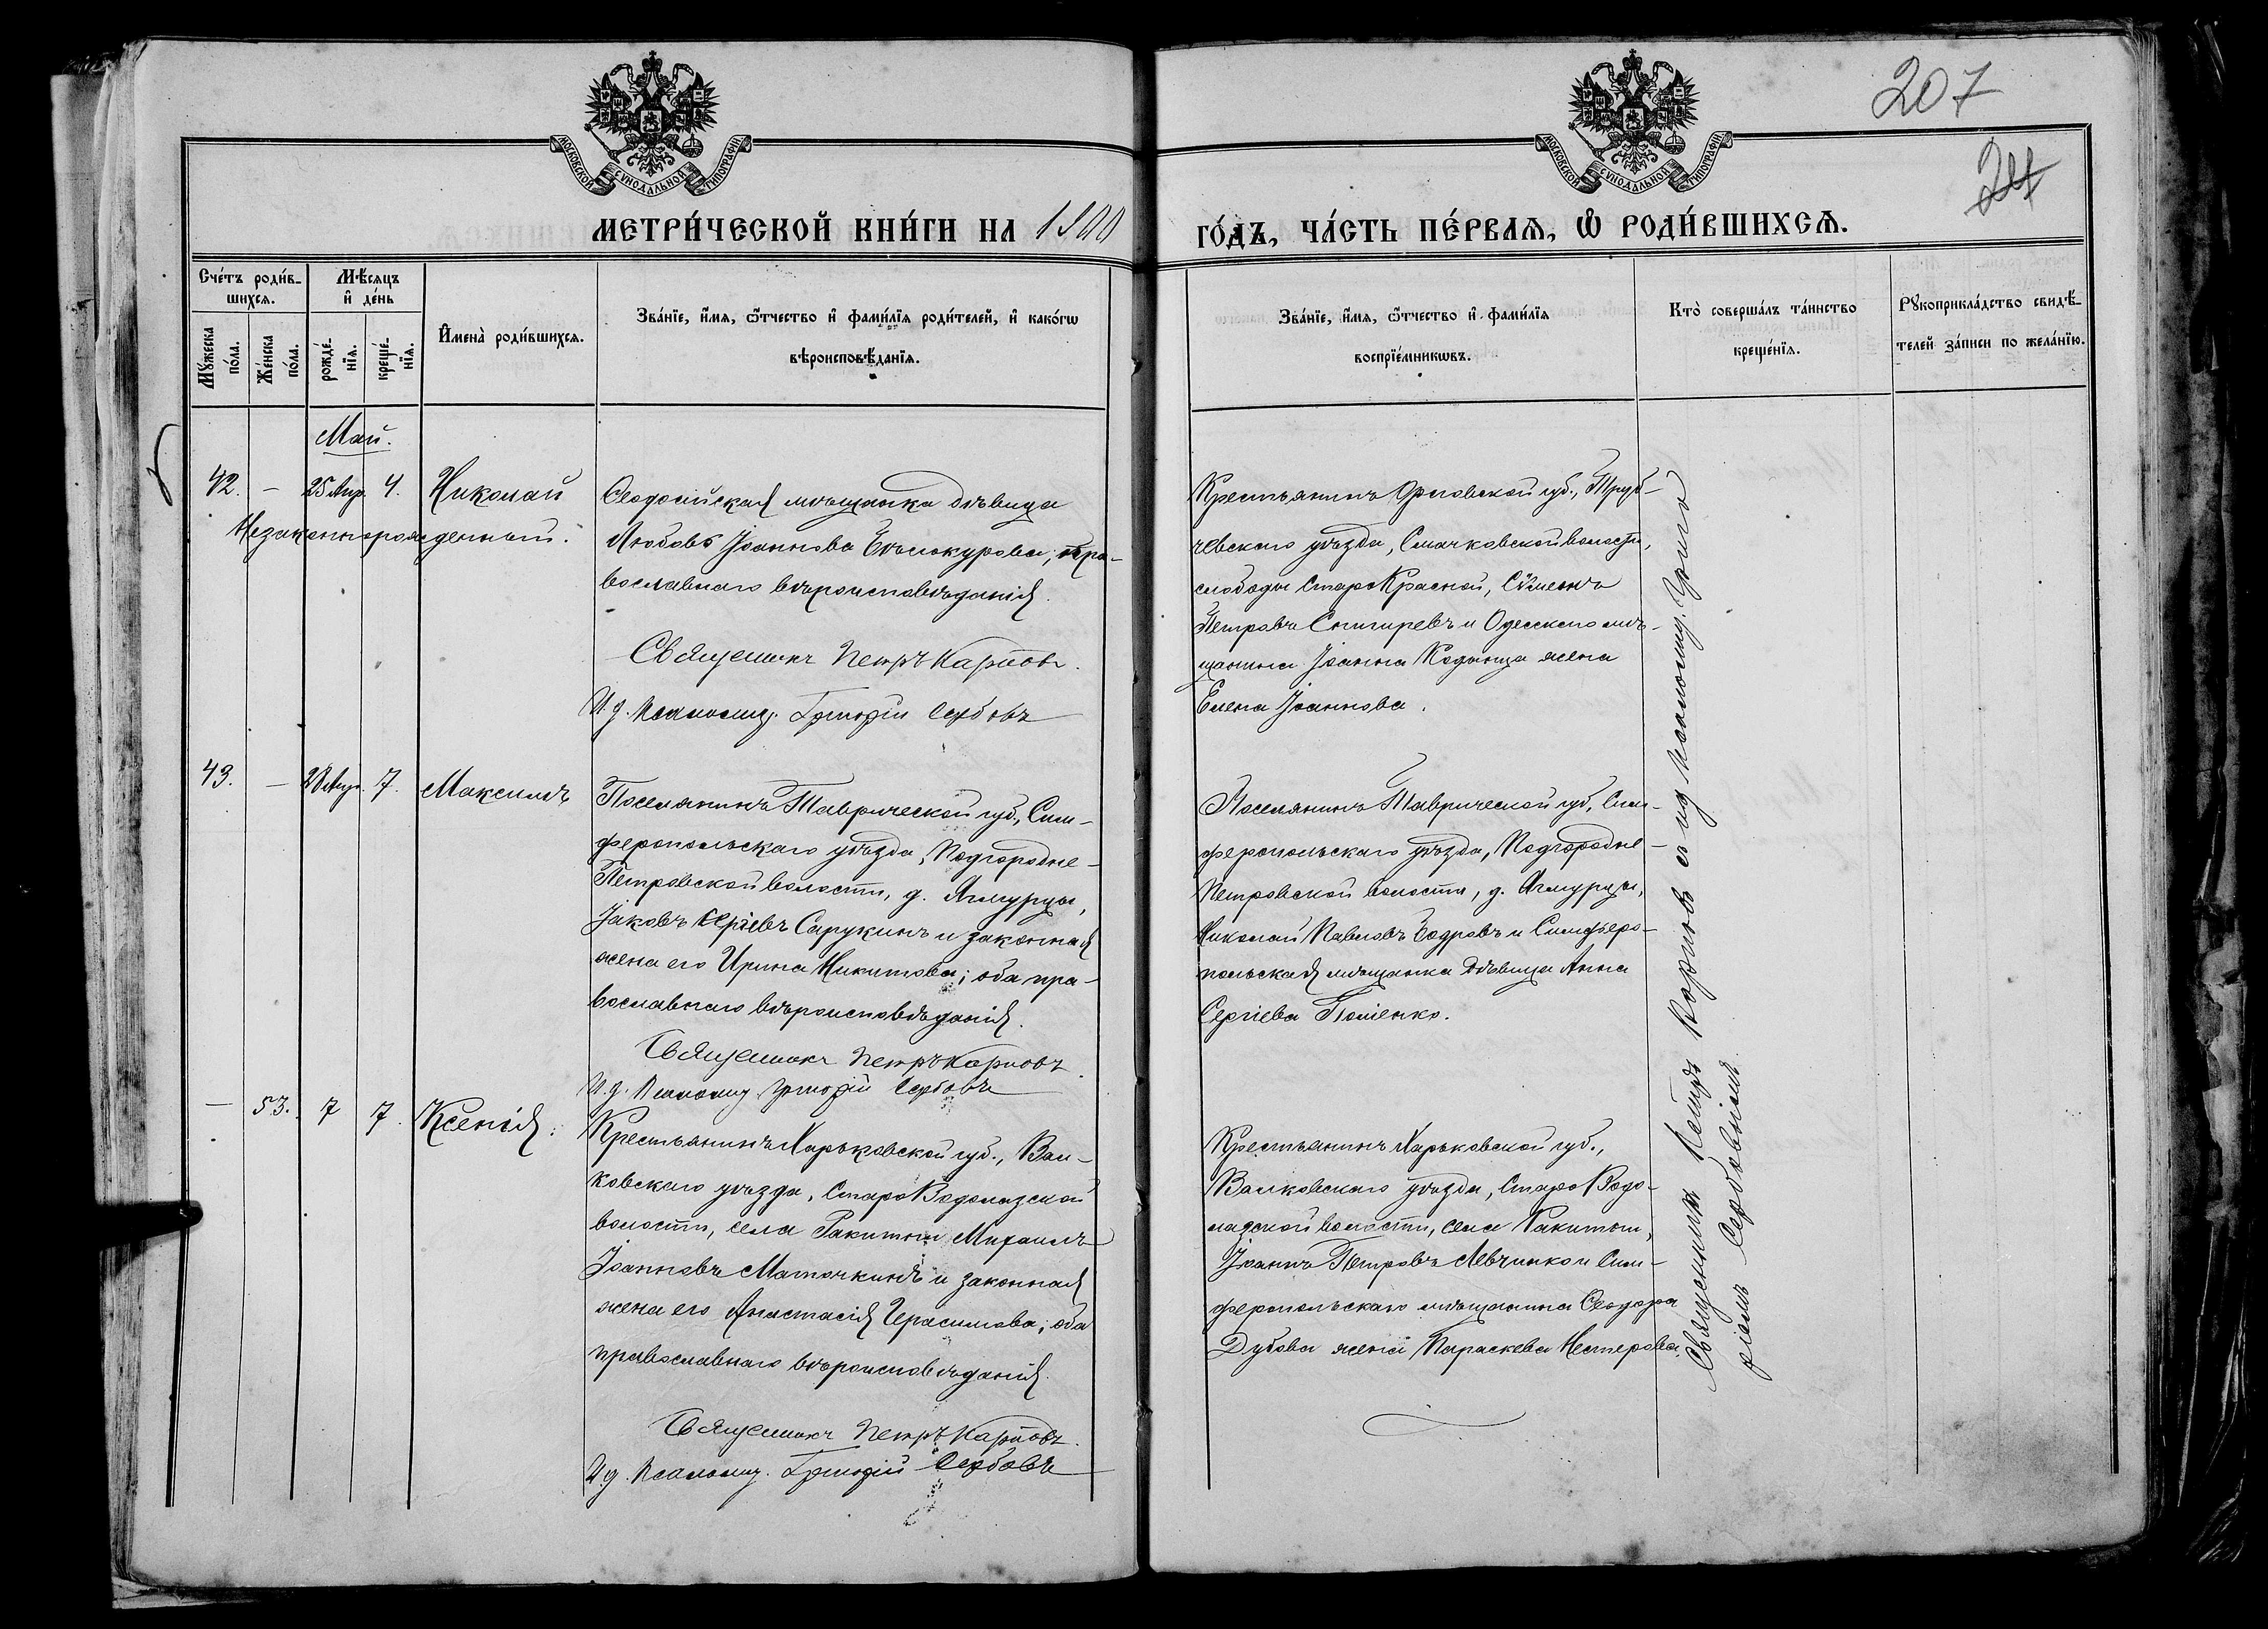 207
МОСКОВСКОЙ СѴНОДАЛЬНОЙ ТИПОГРАФІИ
МОСКОВСКОЙ СѴНОДАЛЬНОЙ ТИПОГРАФІИ
МЕТРИ́ЧЕСКОЙ КНИ́ГИ НА 1900
ГО́ДЪ, ЧА́СТЬ ПЕ́РВАѦ, Ѡ РОДИ́ВШИХСѦ.
Сче́тъ роди́в-
шихсѧ.
Мѣ́сѧцъ
и҆ де́нь
Мꙋ́жеска
по́ла.
Же́нска
по́ла.
рожде́-
нїѧ.
креще́-
нїѧ.
И҆мена̀ роди́вшихсѧ.
Зва́нїе, и҆́мѧ, ѻ҆́тчество и҆ фами́лїѧ роди́телей, и҆ како́гѡ
вѣроисповѣ́данїѧ.
Зва́нїе, и҆́мѧ, ѻ҆́тчество и҆ фами́лїѧ
воспрїе́мникѡвъ.
Кто̀ соверша́лъ та́инство
креще́нїѧ.
Рꙋкоприкла́дство свидѣ́-
телей за́писи по жела́нїю.
Май.
42. — 25 Апр. 4. Николай
Незаконнорожденный.
Ѳеодосійская мѣщанка дѣвица
Любовь Іоаннова Бѣлокурова, пра-
вославнаго вѣроисповѣданія.
Священникъ Петръ Карповъ.
И. д. псаломщ. Григорій Сербовъ
Крестьянинъ Орловской губ., Труб-
чевскаго уѣзда, волости,
слободы Старо Красной, Сѵмеонъ
Петровъ Снигиревъ и Одесскаго мѣ-
щанина Іоанна жена
Елена Іоаннова.
43. — 28 Апр. 7. Максимъ
Поселянинъ Таврической губ., Сим-
феропольскаго уѣзда, Подгородне-
Петровской волости, д. Алмурцы,
Іаковъ Сергіевъ Сарукинъ и законная
жена его Ирина Никитова; оба пра-
вославнаго вѣроисповѣданія.
Священникъ Петръ Карповъ.
И. д. псаломщ. Григорій Сербовъ
Поселянинъ Таврической губ., Сим-
феропольскаго уѣзда, Подгородне-
Петровской волости, д. Алмурцы,
Николай Павловъ Бодровъ и Симферо-
польская мѣщанка дѣвица Анна
Сергіева
— 53. 7 7. Ксенія.
Крестьянинъ Харьковской губ., Вал-
ковскаго уѣзда, Старо Водолазской
волости, села Ракитои Михаилъ
Іоанновъ Маточкинъ и законная
жена его Анастасія Герасимова; оба
православнаго вѣроисповѣданія.
Священникъ Петръ Карповъ.
И. д. псаломщ. Григорій Сербовъ
Крестьянинъ Харьковской губ.,
Валковскаго уѣзда, Старо Водо-
лазской волости, села Ракитои,
Іоаннъ Петровъ Левченко и Сим-
феропольскаго мѣщанина Ѳеодора
Дубова жена Параскева Нестерова.
Священникъ Петръ Карповъ съ и д псаломщ. Григо
ріемъ Сербовымъ